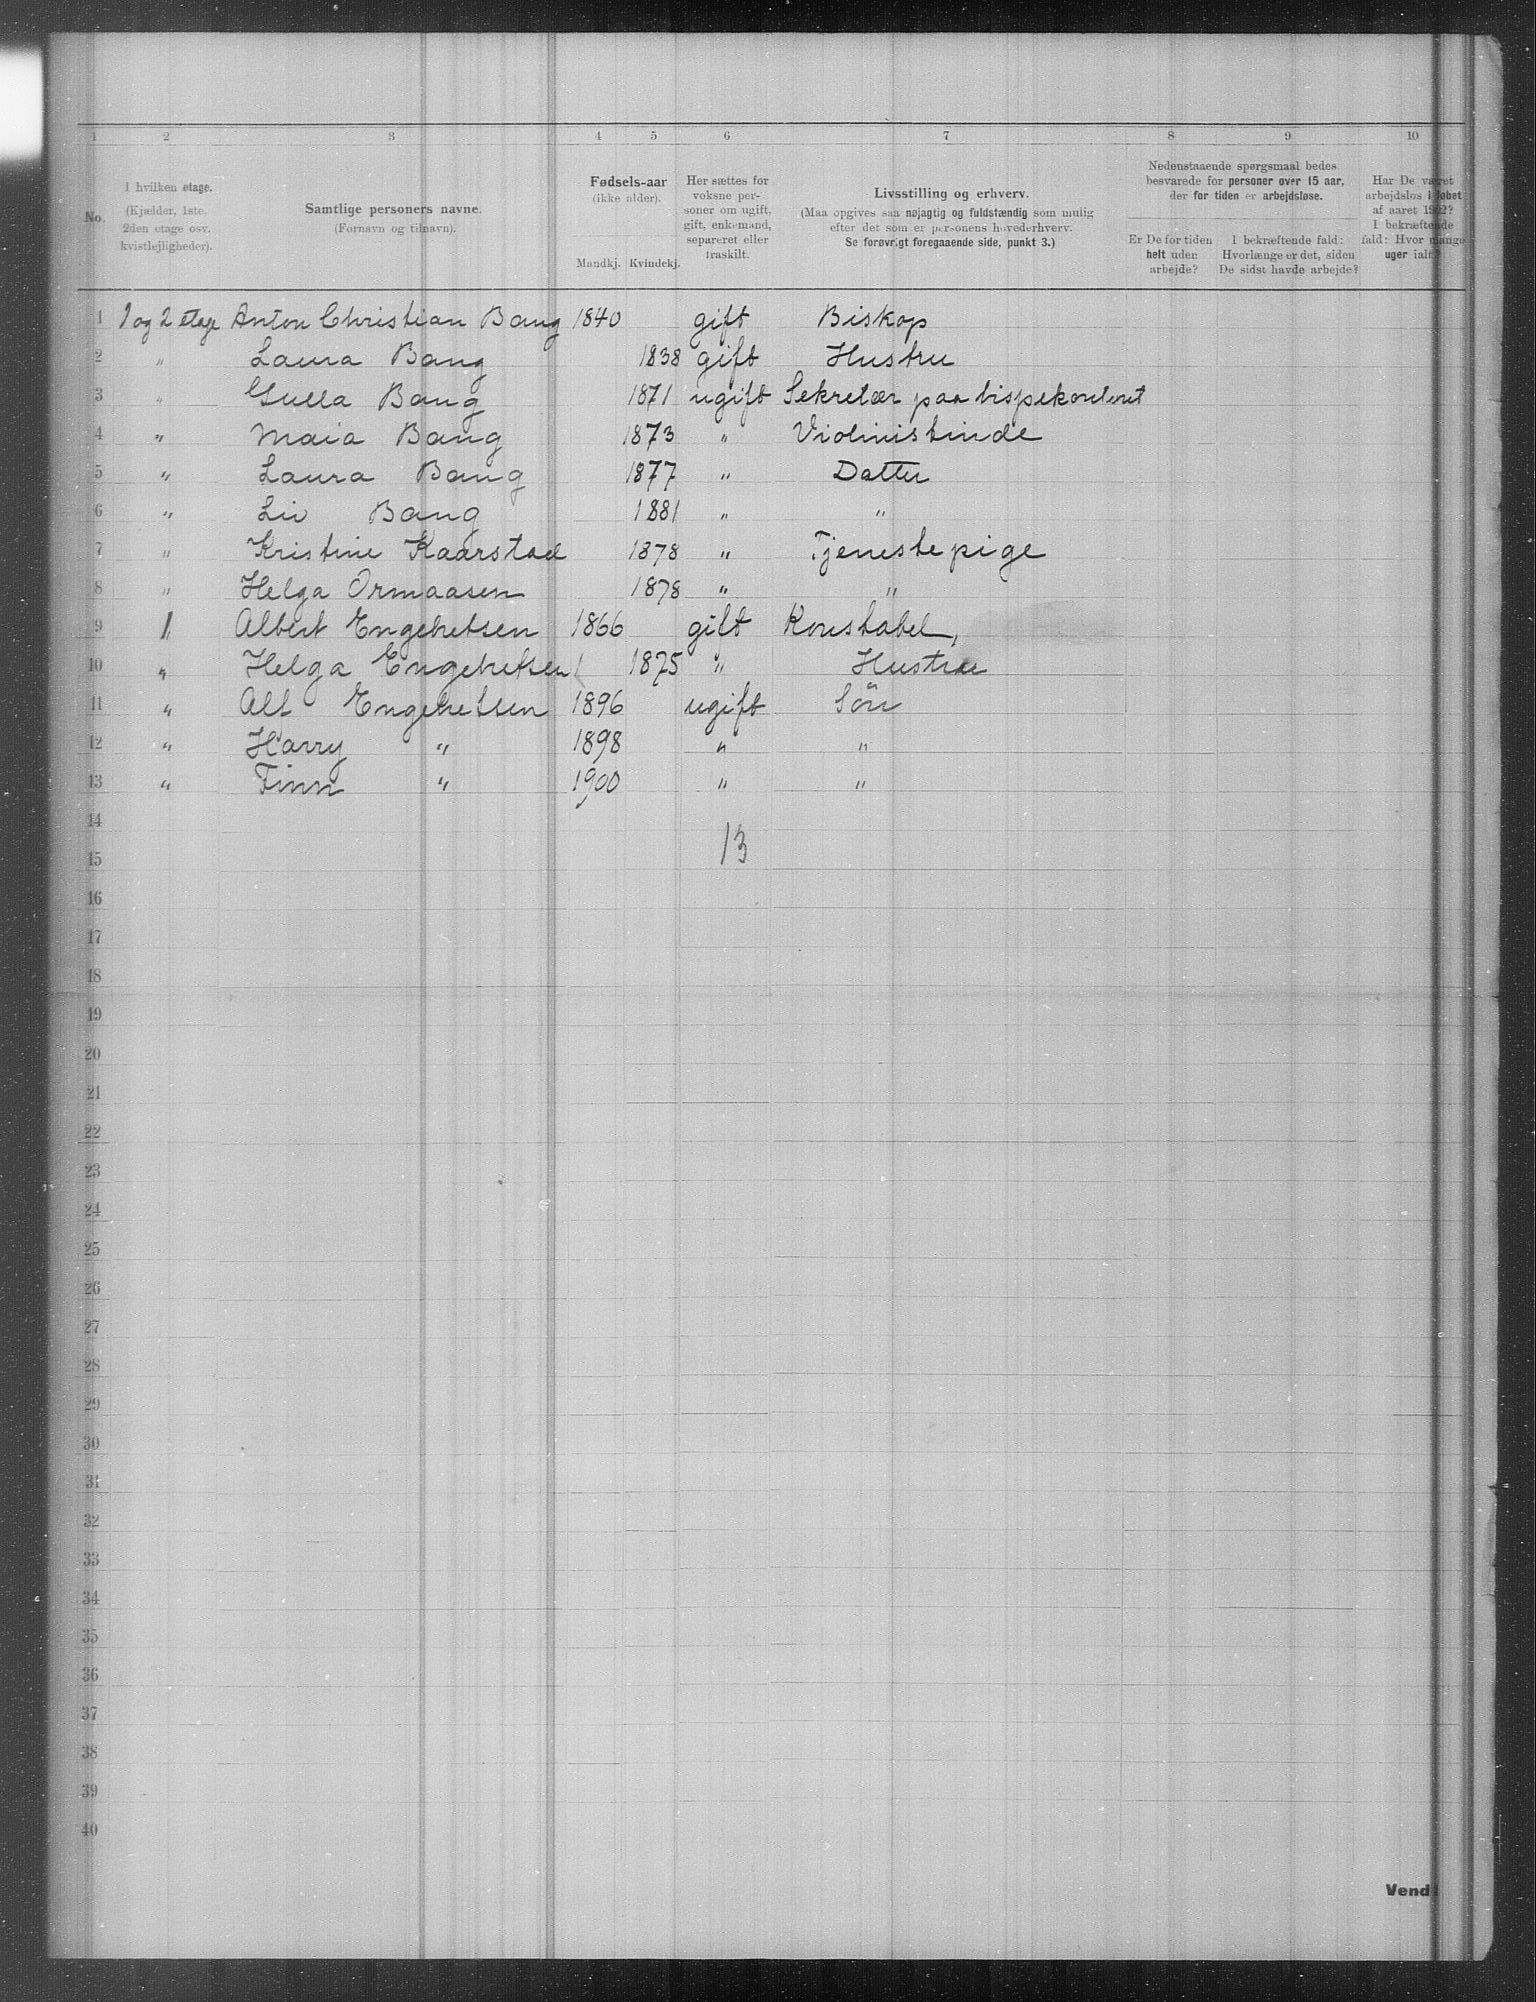 1 2 3 4 5 6 7 8 9 10
No.
I hvilken etage.
(Kjælder, 1ste.
2den etage osv.
kvistlejligheder).
Samtlige personers navne.
(Fornavn og tilnavn).
Fødsels-aar
(ikke alder).
Mandkj. Kvindekj.
Her sættes for
voksne per-
soner om ugift,
gift, enkemand,
separeret eller
fraskilt.
Livsstilling og erhverv.
(Maa opgives saa nøjagtig og fuldstændig som mulig
efter det som er personens hovederhverv.
Se forøvrigt foregaaende side, punkt 3.)
Nedenstaaende spørgsmaal bedes
besvarede for personer over 15 aar,
der for tiden er arbejdsløse.
Er De for tiden
helt uden
arbejde?
I bekræftende fald:
Hvorlænge er det, siden
De sidst havde arbejde?
Har De været
arbejdsløs i løbet
af aaret 1902?
I bekræftende
fald: Hvor mange
uger ialt?
1 1 og 2 etage Anton Christian Bang 1840 gift Biskop
2 " Laura Bang 1838 gift Hustru
3 " Gulla Bang 1871 ugift Sekretær paa bispekontoret
4 " Maia Bang 1873 " Violinistinde
5 " Laura Bang 1877 " Datter
6 " Liv Bang 1881 " "
7 " Kristine Kaarstad 1878 " Tjenestepige
8 " Helga Ormaasen 1878 " "
9 1 Albert Engebretsen 1866 gift Konstabel,
10 " Helga Engebretsen 1875 " Hustru
11 " Alf Engebretsen 1896 ugift Søn
12 " Harry " 1898 " "
13 " Finn " 1900 " "
14
13
15
16
17
18
19
20
21
22
23
24
25
26
27
28
29
30
31
32
33
34
35
36
37
38
39
40
Vend!